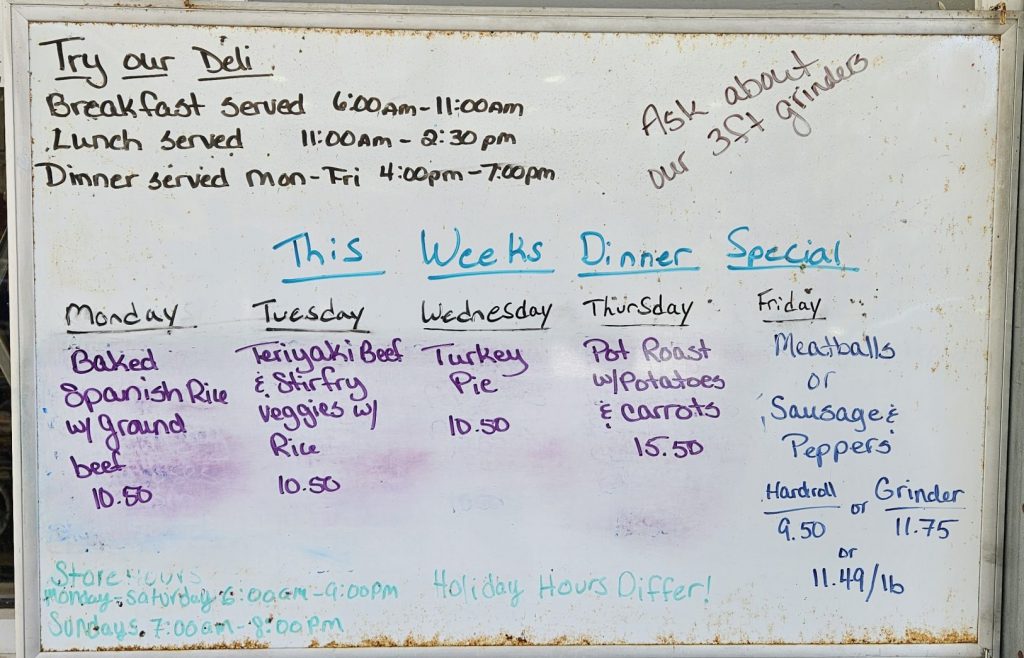 Try our Deli
Breakfast served 6:00Am-11:00Am
Lunch served 11:00Am-2:30pm
Dinner served Mon-Fri 4:00pm-7:00pm
Ask about
our 3ft grinders
This Weeks Dinner Special
Monday
Baked
Spanish Rice
w/ ground
beef
10.50
Tuesday
Teriyaki Beef
& Stirfry
veggies w/
Rice
10.50
Wednesday
Turkey
Pie
10.50
Thursday
Pot Roast
w/Potatoes
& Carrots
15.50
Friday
Meatballs
or
Sausage &
Peppers
Hardroll or Grinder
9.50 11.75
or
11.49/lb
Store Hours
Monday-Saturday 6:00am-9:00pm
Sundays 7:00am-8:00pm
Holiday Hours Differ!